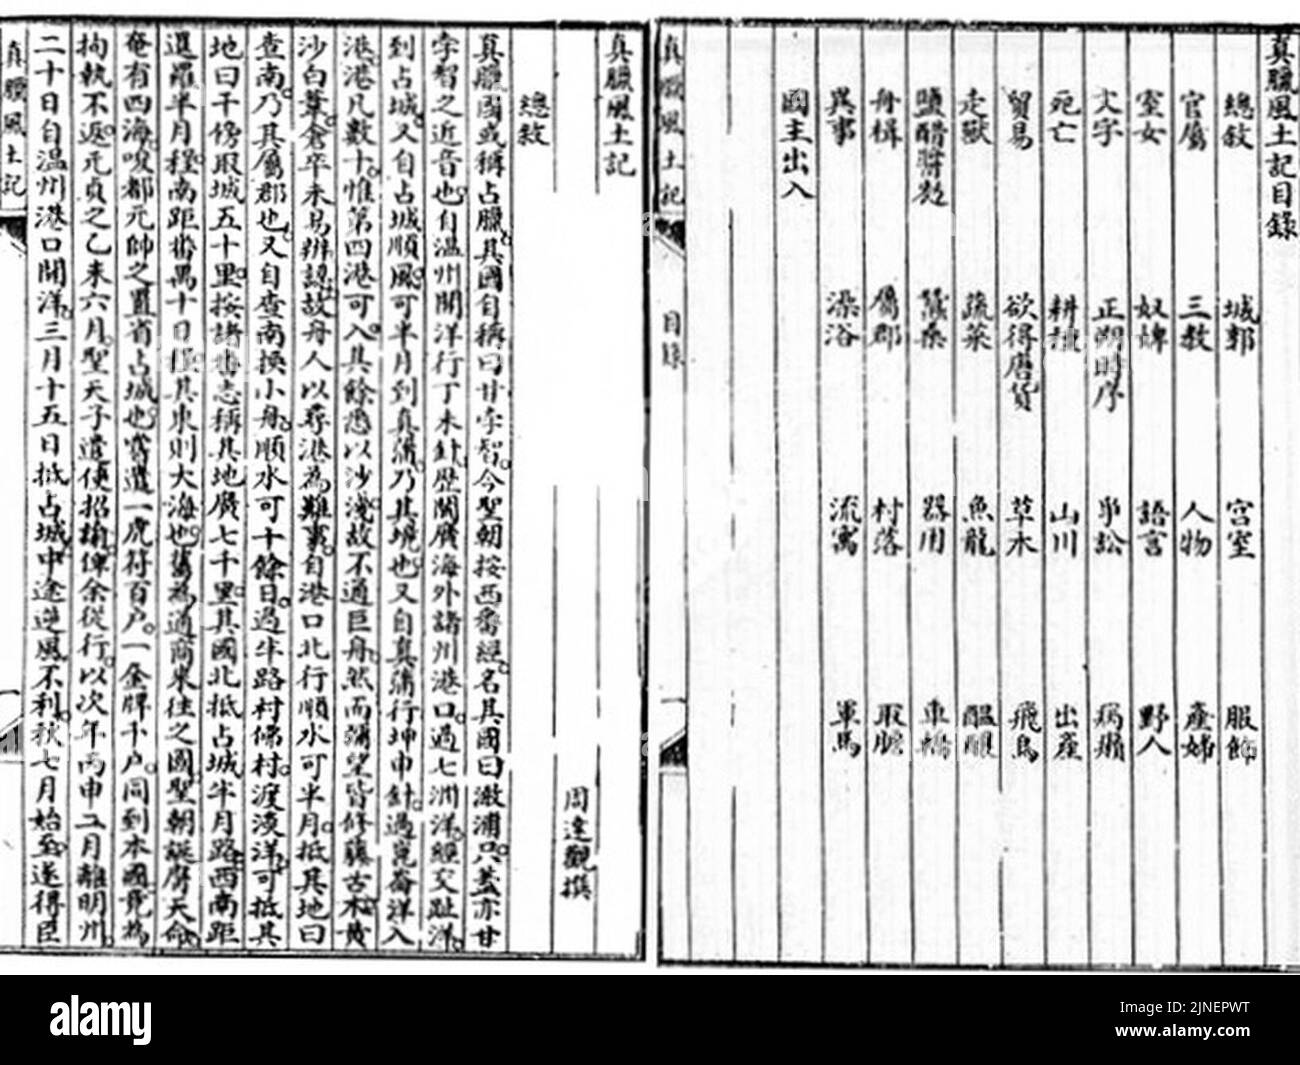 真臘風土記目錄
總敘 城郭 宮室 服飾
官屬 三教 人物 產婦
室女 奴婢 語言 野人
文字 正朔時序 爭訟 病癩
死亡 耕種 山川 出產
貿易 欲得唐貨 草木 飛鳥
走獸 蔬菜 魚龍 醞釀
鹽醋醬麪 蠶桑 器用 車轎
舟楫 屬郡 村落 取膽
異事 澡浴 流寓 軍馬
國主出入
真臘風土記 目錄 一
真臘風土記
周達觀撰
總敘
真臘國或稱占臘其國自稱曰甘孛智今聖朝按西番經名其國曰澉浦只蓋亦甘
孛智之近音也自溫州開洋行丁未針歷閩廣海外諸州港口過七洲洋經交趾洋
到占城又自占城順風可半月到真蒲乃其境也又自真蒲行坤申針過崑崙洋入
港港凡數十惟第四港可入其餘悉以沙淺故不通巨舟然而彌望皆修藤古木黃
沙白葦倉卒未易辨認故舟人以尋港為難事自港口北行順水可半月抵其地曰
查南乃其屬郡也又自查南換小舟順水可十餘日過半路村佛村渡淡洋可抵其
地曰干傍取城五十里按諸番志稱其地廣七千里其國北抵占城半月路西南距
暹羅半月程南距番禺十日程其東則大海也舊為通商來往之國聖朝誕膺天命
奄有四海唆都元帥之置省占城也嘗遣一虎符百戶一金牌千戶同到本國竟為
拘執不返元貞之乙未六月聖天子遣使招諭俾余從行以次年丙申二月離明州
二十日自溫州港口開洋三月十五日抵占城中途逆風不利秋七月始至遂得臣
真臘風土記 一
alamy
Image ID: 2JNEPWT
www.alamy.com